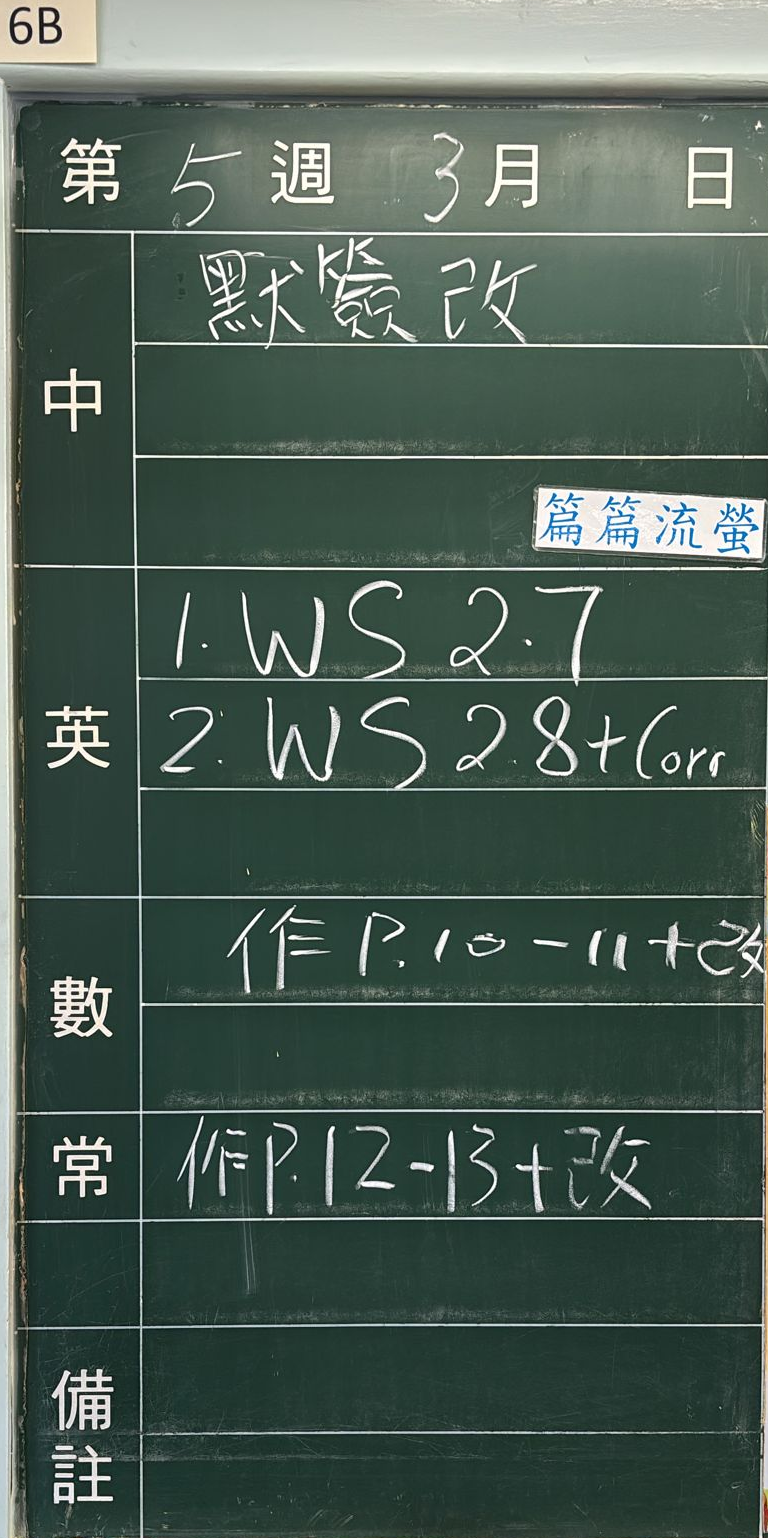 6B
第 5 週 3 月 日
中
默簽改
篇篇流螢
英
1. WS 2.7
2. WS 2.8 + Corr
數
作 P.10 - 11 + 改
常
作 P.12 - 13 + 改
備註